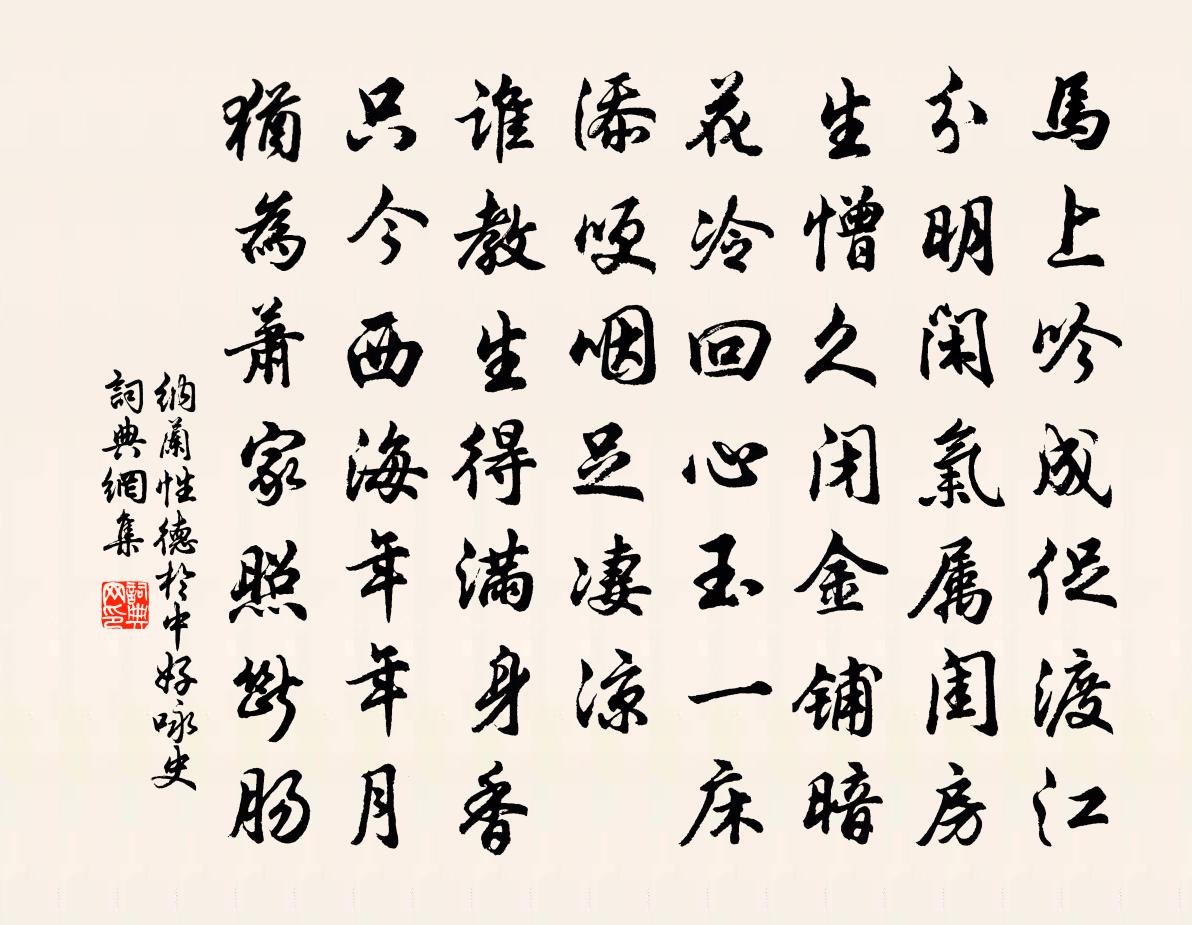 馬上吟成促渡江
分明閑氣属閨房
生憎久闭金铺暗
花冷回心玉一床
添哽咽足凄凉
谁教生得满身香
只今西海年年月
猶為蕭家照斷肠
纳蘭性德於中好咏史
詞典網集
詞典网印